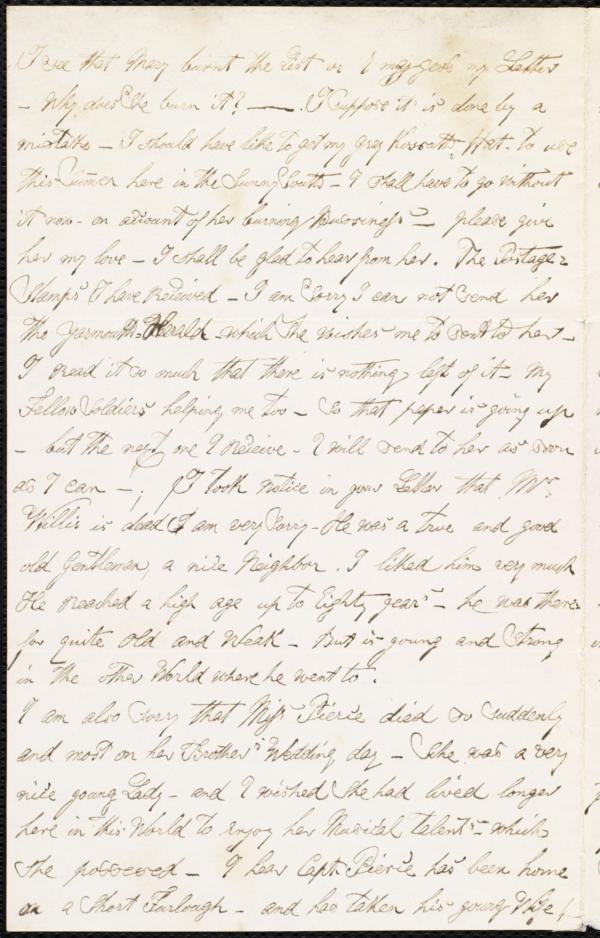 I see that Mary burnt the Rest of my Letter
– Why does She burn it? — . I Suppose it is done by a
mistake – I should have like to got my gray Kossuth Hat. to use
this Sumer here in the Sunny South – I Shall have to go without
it now – on account of her burning – please give
her my love – I Shall be glad to hear from her. The Postage=
Stamps I have Received – I am Sorry I can not Send her
the Yarmouth=Herald which She wishes me to Sent to her –
I Read it so much that there is nothing left of it – My
Fellow Soldiers helping me too – So that paper is going up
– but the next one I Receive – I will Send to her as Soon
as I can – ; I took Notice in your Letter that Mr.
Willis is dead I am very Sorry – He was a true and good
old Gentleman, a nice Neighbor. I liked him very much
He Reached a high age up to Eighty years – he was there=
for quite Old and Weak – But is young and Strong
in the other World where he went to.
I am also Sorry that Miss Pierce died so Suddenly
and most on her Brother's Wedding day – She was a very
nice young Lady – and I wished She had lived longer
here in this World to enjoy her Musical talents – which
She possessed – I hear Capt. Pierce has been home
on a Short Furlough – and has taken his young Wife!